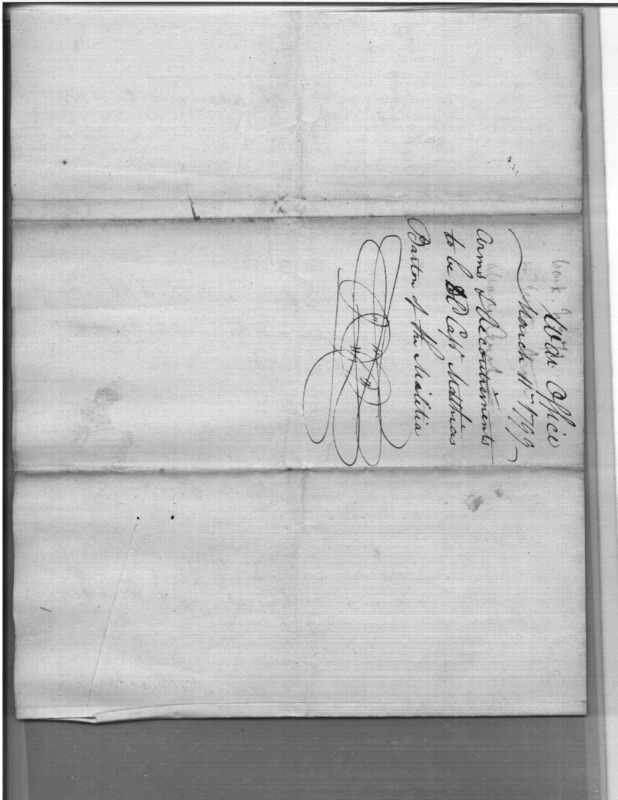 War Office
March 11th 1799
Arms & Accoutrements
to be Capt Mathias
Barton of the Militia